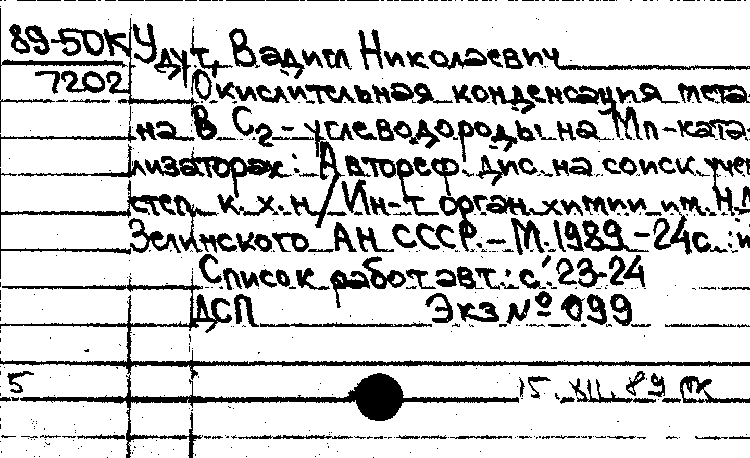 89-5ДК Удут, Вадим Николаевич
7202 Окислительная конденсация мета-
на в C2-углеводороды на Mn-ката-
лизаторах: Автореф. дис. на соиск. учен
степ. к. х. н / Ин-т орган. химии им. Н.Д
Зелинского АН СССР. - М. 1989 - 24с. : и
Список работ авт.: с. 23-24
ДСП Экз № 099
5 15. XII. 89